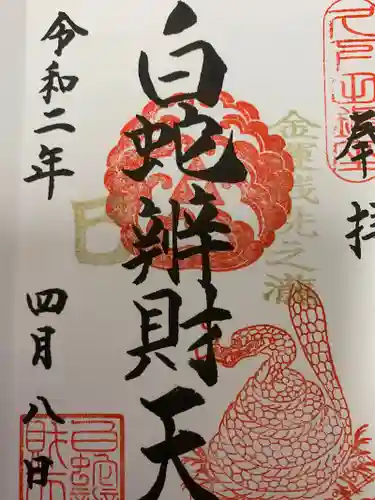 奉拝
金運銭洗之滝
白蛇辨財天
巳
令和二年
四月八日
白蛇
財天